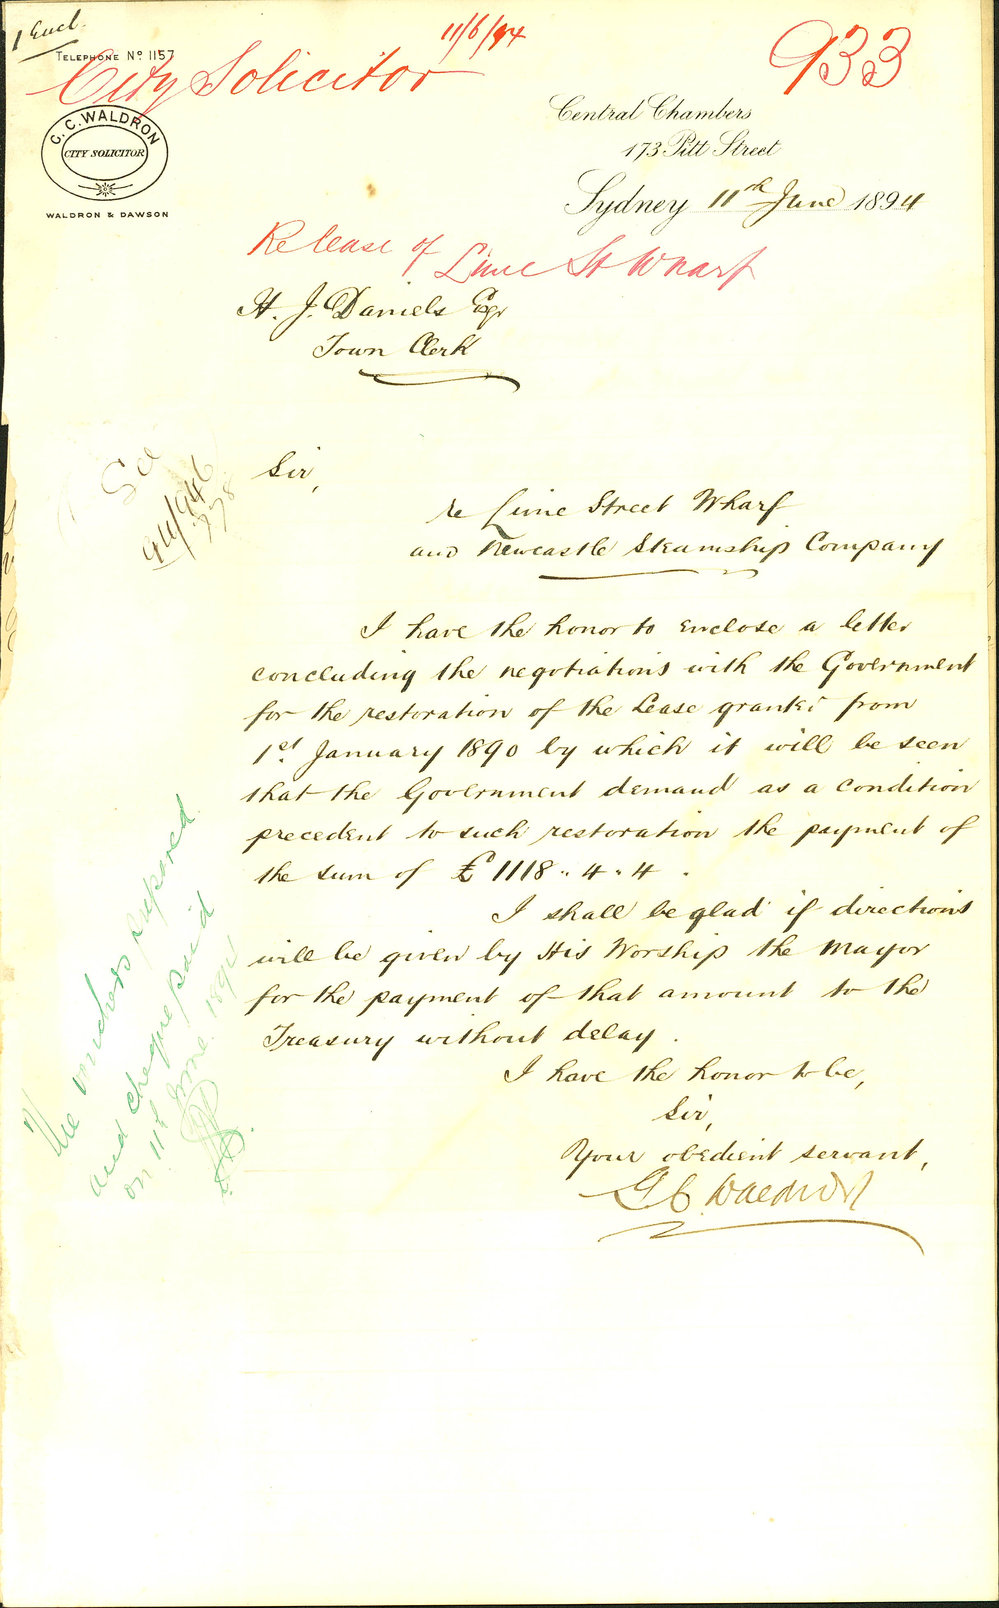 1 Encl.
11/6/94
933
TELEPHONE No 1157
City Solicitor
G. C. WALDRON
CITY SOLICITOR
WALDRON & DAWSON
Central Chambers
173 Pitt Street
Sydney 11th June 1894
Release of Lime St Wharf
H. J. Daniels Esqr
Town Clerk
See
94/946
Sir,
re Lime Street Wharf
and Newcastle Steamship Company
I have the honor to enclose a letter
concluding the negotiations with the Government
for the restoration of the Lease granted from
1st January 1890 by which it will be seen
that the Government demand as a condition
precedent to such restoration the payment of
the sum of £1118.. 4 . 4 .
I shall be glad if directions
will be given by His Worship the Mayor
for the payment of that amount to the
Treasury without delay .
I have the honor to be,
Sir,
Your obedient servant,
G C. Waldron
The vouchers prepared
and cheque paid
on 11th June. 1894